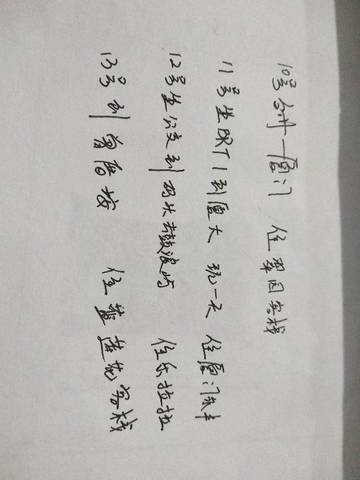 10号 一厦门 住 翠园客栈
11号坐BRT1到厦大 玩一天 住厦门
12号坐公交到码头去鼓浪屿 住乐拉拉
13号到曾厝垵 住蓝莲花客栈